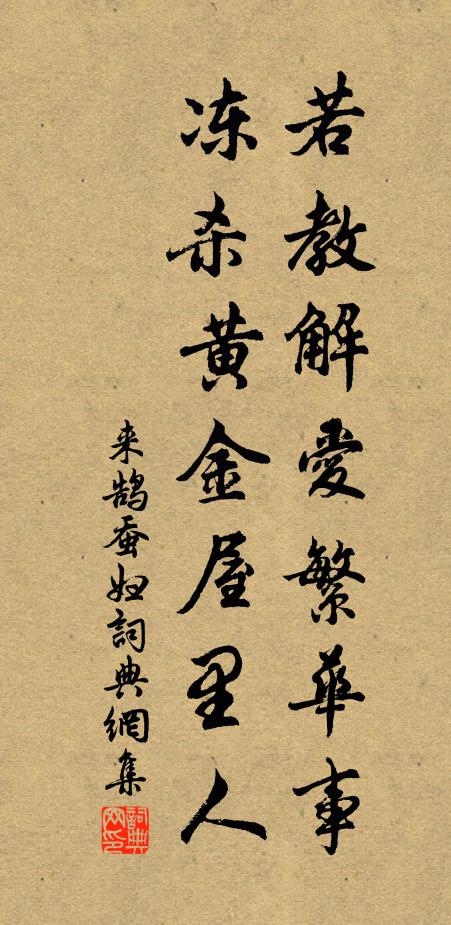 若教解愛繁華事
冻杀黄金屋里人
来鹄蚕妇詞典網集
詞典網印